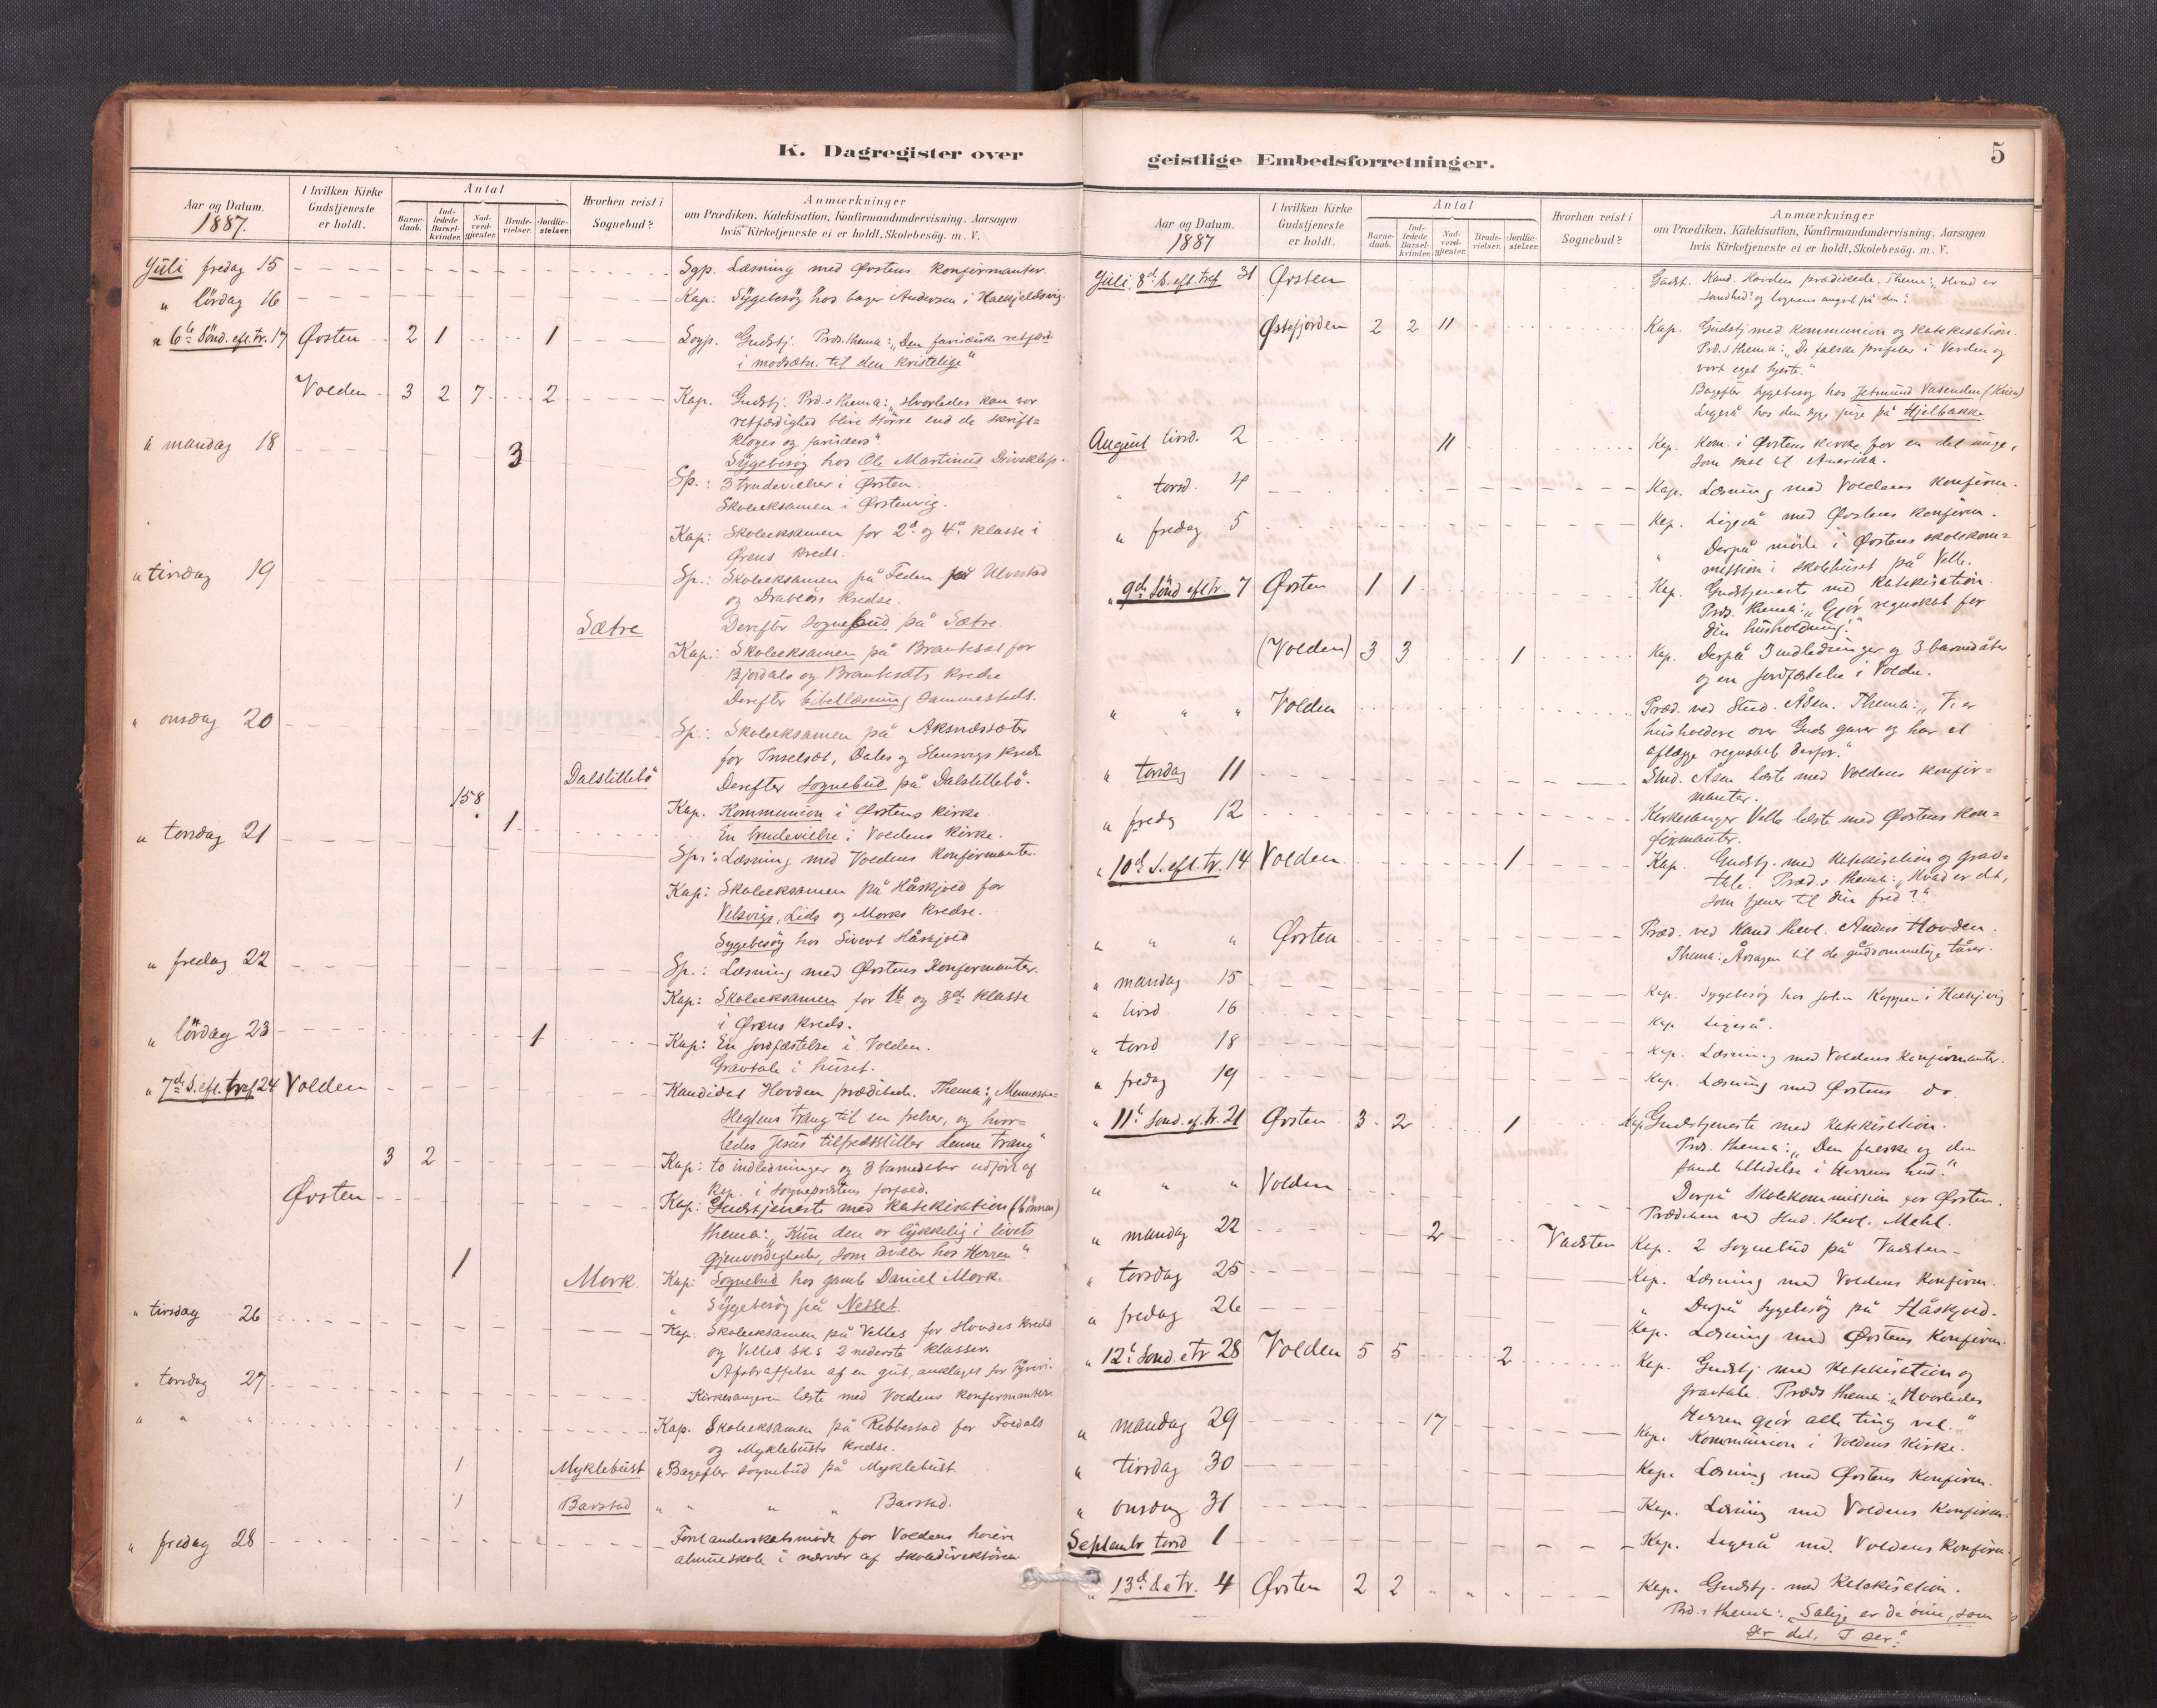 K. Dagregister over
Aar og Datum.
1887.
I hvilken Kirke
Gudstjeneste
er holdt.
Antal
Barne-
daab.
Ind-
ledede
Barsel-
kvinder.
Nad-
verd-
gjester.
Brude-
vielser.
Jordfæ-
stelser.
Hvorhen reist i
Sognebud?
Anmærkninger
om Prædiken, Katekisation, Konfirmandundervisning, Aarsagen
hvis Kirketjeneste ei er holdt, Skolebesög. m. V.
Juli fredag 15 Sgp. Læsning med Örstens konfirmanter.
" lördag 16 Kap: Sygebesög hos bager Andersen i Halkjeldsvig.
" 6te Sönd. eft. tr. 17 Örsten 2 1 1 Sogp. Gudstj. Præd. thema: "Den farisæiske retfærd.
i modsætn. til den kristelige"
Volden 3 2 7 2 Kap. Gudstj. Prd.s thema: "Hvorledes kan vor
retfærdighed blive större end de skrift=
kloges og farisæers".
Sygebesög hos Ole Martinus Driveklep.
" mandag 18 3 Sp.: 3 brudevielser i Örsten.
Skoleeksamen i Örstenvig.
Kap: Skoleeksamen for 2d og 4de klasse i
Örens kreds.
" tirsdag 19 Sp.: Skoleeksamen på Feden på Ulvestad
og Drabløs kredse.
Sætre Derefter sognebud på Sætre.
Kap: Skoleeksamen på Brautesæt for
Bjordals og Brautesæts kredse
Derefter bibellæsning sammesteds.
" onsdag 20 Sp.: Skoleeksamen på Aksnessæter
for Inselsæt, Dales og Steinsvigs kreds
Dalslittebö Derefter sognebud på Dalslittebö.
158 Kap. Kommunion i Örstens kirke.
1 En brudevielse i Voldens kirke.
" torsdag 21 Sp.: Læsning med Voldens konfirmanter.
Kap: Skoleeksamen på Håskjold for
Velsvigs, Lids og Morks kredse.
Sygebesög hos Sivert Håskjold
" fredag 22 Sp.: Læsning med Örstens Konfirmanter.
Kap: Skoleeksamen for 1te og 3die klasse
i Örens kreds.
" lördag 23 1 Kap: En jordfæstelse i Volden.
Gravtale i huset.
" 7de S. eft. tref 24 Volden Kandidat Hovden prædikede. Thema: "Menneske=
slegtens trang til en frelser, og hvor=
ledes Jesus tilfredsstiller denne trang"
3 2 Kap: to indledninger og 3 barnedåber udfört af
Kap. i sogneprestens forfald.
Örsten Kap: Gudstjeneste med katekisation (bönnen)
thema: "Kun den er lykkelig i livets
gjenvordigheder, som dvæler hos Herren"
1 Mork Kap: Sognebud hos gamle Daniel Mork.
" Sygebesög på Nesset.
" tirsdag 26 Kap. Skoleeksamen på Velles for Hovdes kreds
og Velles sk.s 2 nederste klasser.
Afstraffelse af en gut, anklaget for tyveri.
" torsdag 27 Kirkesangeren læste med Voldens konfirmanter.
" " " Kap. Skoleeksamen på Rebbestad for Foldals
og Myklebusts kredse.
1 Myklebust " Bagefter sognebud på Myklebust
1 Barstad " " " " Barstad.
" fredag 28 Forstanderskabsmöde for Voldens höiere
almueskole i nærvær af Skoledirektören.
geistlige Embedsforretninger.
5
Aar og Datum.
1887
I hvilken Kirke
Gudstjeneste
er holdt.
Antal
Barne-
daab.
Ind-
ledede
Barsel-
kvinder.
Nad-
verd-
gjester.
Brude-
vielser.
Jordfæ-
stelser.
Hvorhen reist i
Sognebud?
Anmærkninger
om Prædiken, Katekisation, Konfirmandundervisning, Aarsagen
hvis Kirketjeneste ei er holdt, Skolebesög. m. V.
Juli. 8d s. eft. tref 31 Örsten Gudst. Kand. Hovden prædikede. Thema: "Hvad er
sandhed? og lognens angreb på den".
Østefjorden 2 2 11 Kap. Gudstj. med kommunion og katekisation.
Prd.s thema: "De falske profeter i Verden og
vort eget hjerte."
Bagefter sygebesog hos Jetmund Vasenden
Ligeså hos den syge pige på Hjelbakke
August tirsd. 2 11 Kap. Kom. i Örstens kirke for en del unge,
som skal til Amerika.
" torsd. 4 Kap. Læsning med Voldens konfirm.
" fredag 5 Kap. Ligeså med Örstens konfirm.
" Derpå möde i Örstens skolekom=
mission i skolehuset på Velle.
" 9de Sönd eft tr. 7 Örsten 1 1 Kap. Gudstjeneste med katekisation.
Prds. thema: "Gjör regnskab for
din husholdning!"
(Volden) 3 3 1 Kap. Derpå 3 indledninger og 3 barnedåber
og en jordfæstelse i Volden.
" " " Volden Præd. ved Stud. Åsen. Thema: "Vi er
husholdere over Guds gaver og har at
aflægge regnskab derfor."
" torsdag 11 Stud. Åsen læste med Voldens konfir=
manter.
" fredg 12 Kirkesanger Velle læste med Örstens kon=
firmanter.
" 10d S. eft. tr. 14 Volden 1 Kap. Gudstj. med katekisation og grav=
tale. Præd.s thema: "Hvad er det,
som tjener til din fred?"
" " " Örsten Præd. ved Kand theol. Anders Hovden.
Thema: Årsagen til de gudommelige tårer.
" mandag 15 Kap. Sygebesög hos John Koppen i Halkjsvig
" tirsd 16 Kap. Ligeså.
" torsd 18 Kap. Læsning med Voldens konfirmanter.
" fredag 19 Kap. Læsning med Örstens do.
" 11te Sond. ef. tr. 21 Örsten 3 2 1 Kap. Gudstjeneste med katekisation.
Prds. thema: "Den falske og den
sande tilbedelse i Herrens hus."
Derpå Skolekommission for Örsten.
" " " Volden Prædiken ved stud. theol. Mehl.
" mandag 22 2 Vadsten Kap. 2 sognebud på Vadsten
" torsdag 25 Kap. Læsning med Voldens konfirm.
" Derpå sygebesög på Håskjold.
" fredag 26 Kap. Læsning med Örstens konfirm.
" 12te Sond. e tr 28 Volden 5 5 2 Kap. Gudstj. med katekisation og
gravtale. Præds thema: "Hvorledes
Herren gjör alle ting vel."
" mandag 29 17 Kap. Kommunion i Voldens kirke.
" tirsdag 30 Kap. Læsning med Örstens konfirm.
" onsdag 31 Kap. Læsning med Voldens konfirm.
Septembr torsd 1 Kap. Ligeså med Voldens konfirm.
" 13d S. e tr. 4 Örsten 2 2 Kap. Gudstj. med katekisation.
Prd.s thema: "Salige er de öine, som
ser det, I ser."